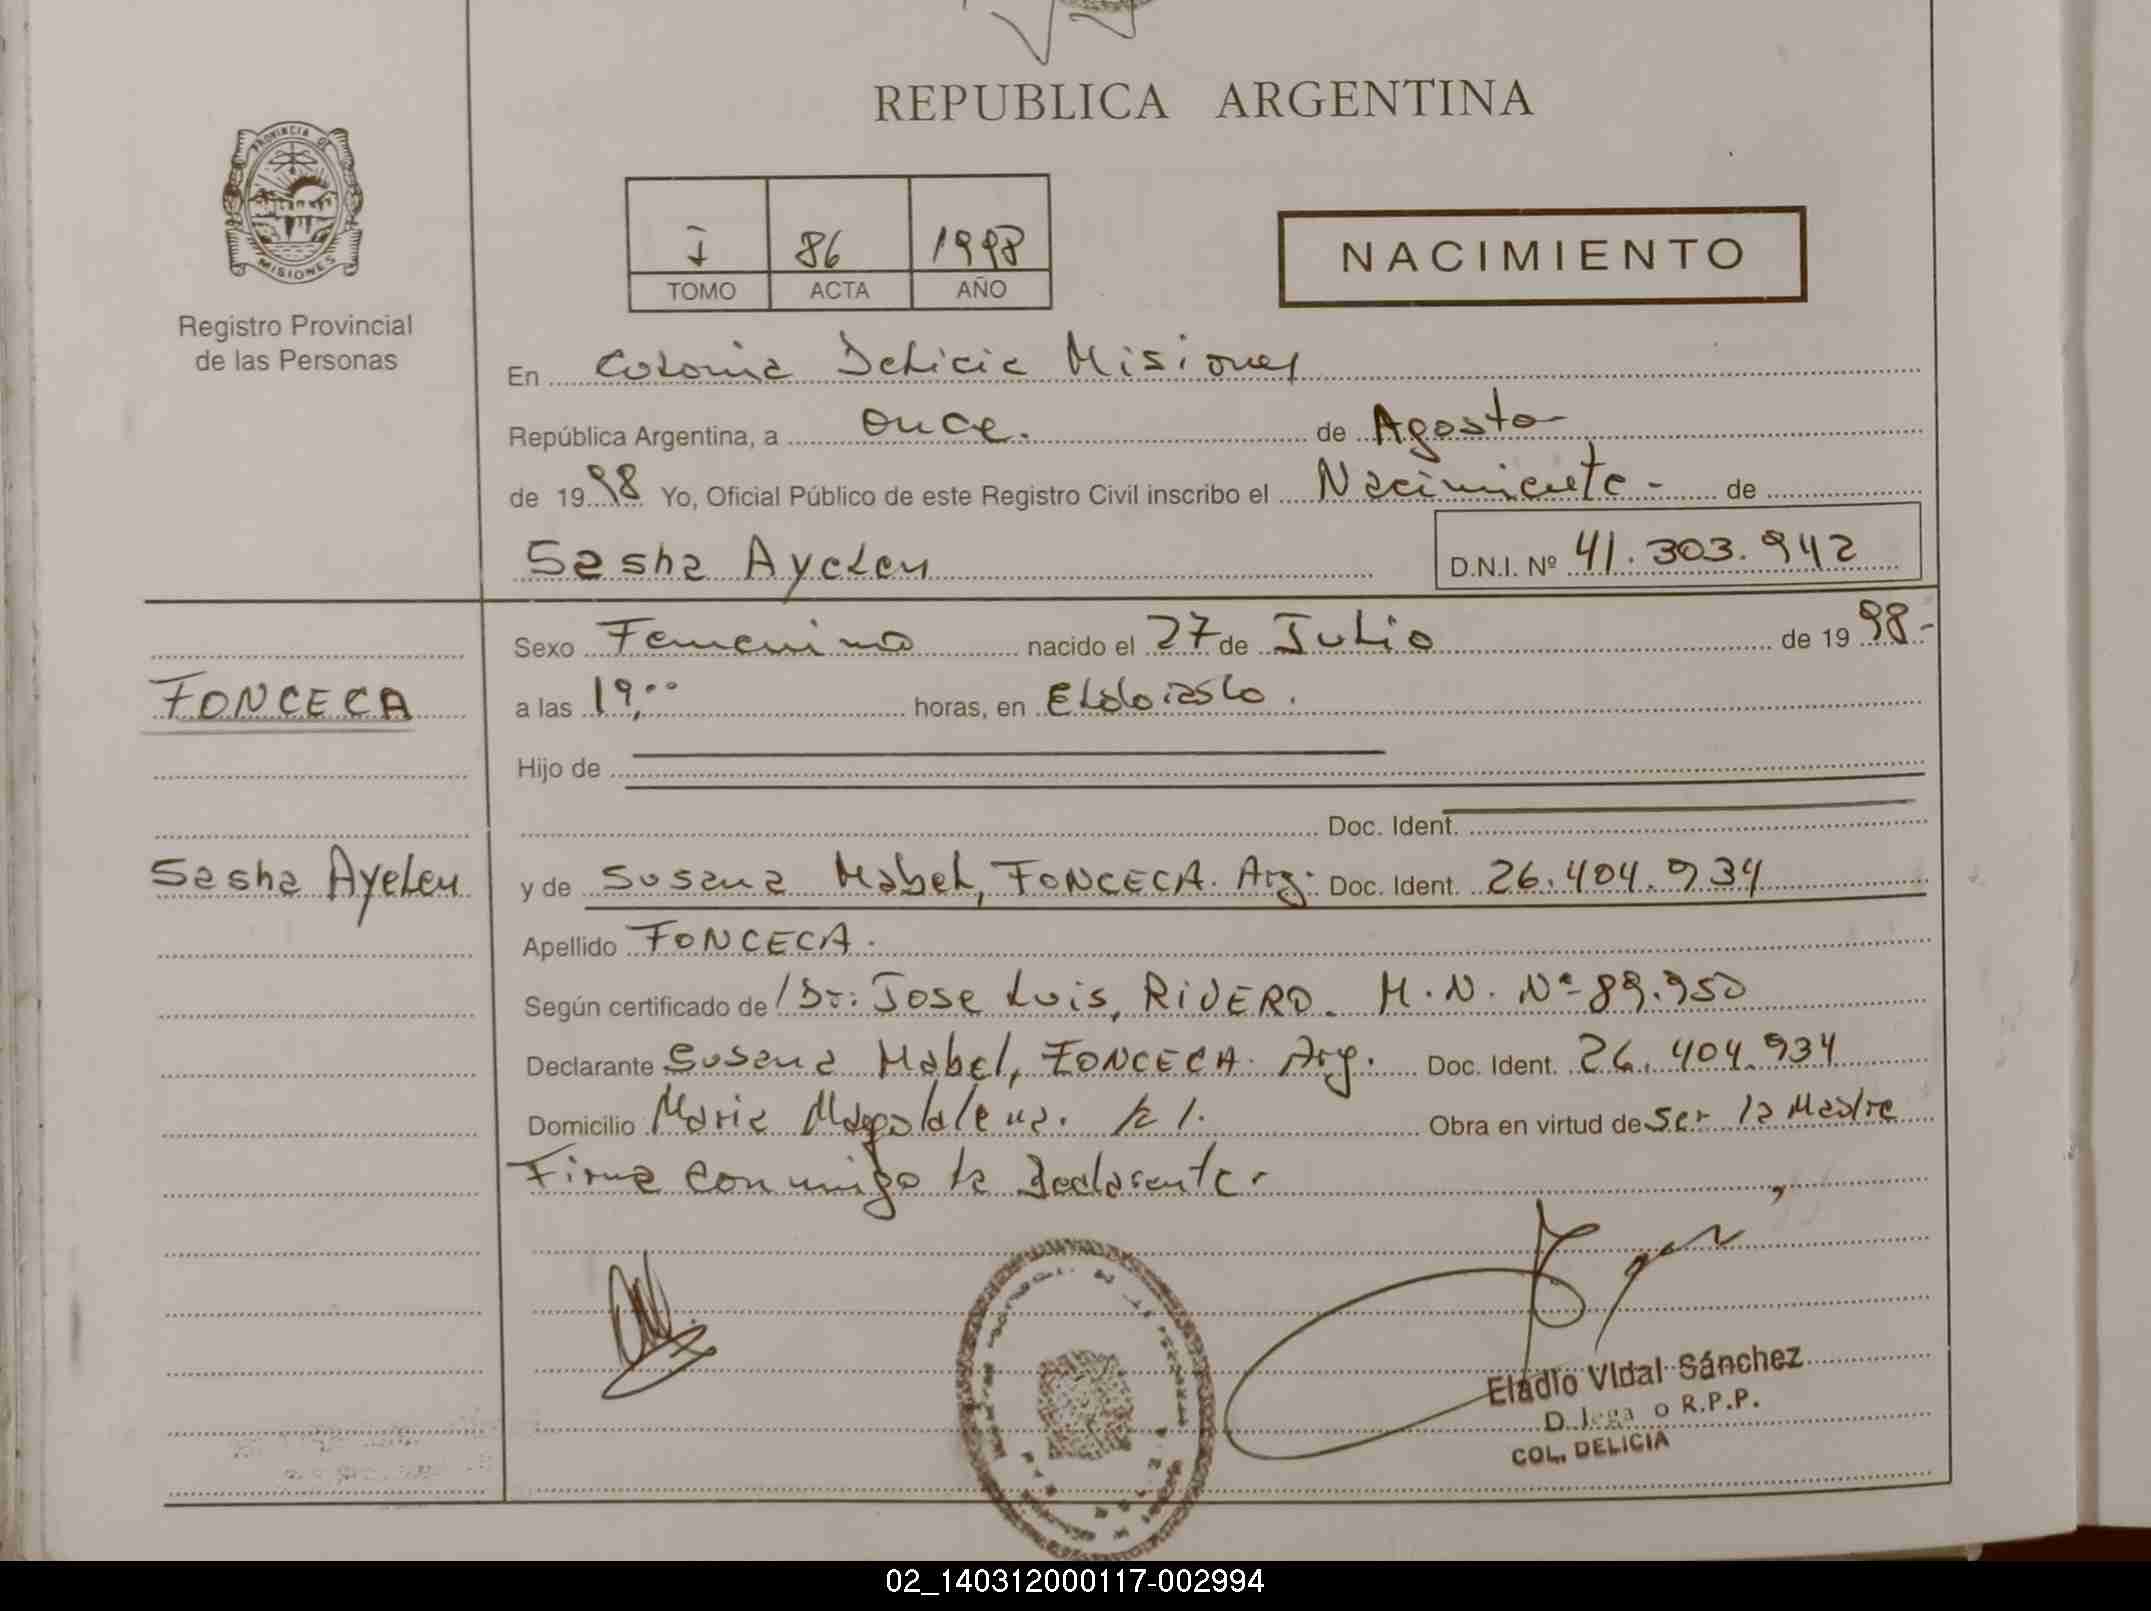 REPUBLICA ARGENTINA
PROVINCIA DE
MISIONES
Registro Provincial
de las Personas
I 86 1998
TOMO ACTA AÑO
NACIMIENTO
En Colonia Delicia Misiones
República Argentina, a once. de Agosto
de 1998 Yo, Oficial Público de este Registro Civil inscribo el Nacimiento - de
Sasha Ayelen D.N.I. Nº 41.303.942
Sexo Femenino nacido el 27 de Julio de 1998.-
FONCECA
a las 19,00 horas, en Eldorado.
Hijo de
Doc. Ident.
Sasha Ayelen
y de Susana Mabel, FONCECA. Arg. Doc. Ident. 26.404.934
Apellido FONCECA.
Según certificado de Dr: Jose Luis, RIVERO. M.N. Nº 89.950
Declarante Susana Mabel, FONCECA. Arg. Doc. Ident. 26.404.934
Domicilio Maria Magdalena. Obra en virtud de ser la Madre
Firma conmigo la Declarante.
Eladio Vidal Sánchez
R.P.P.
COL. DELICIA
02_140312000117-002994